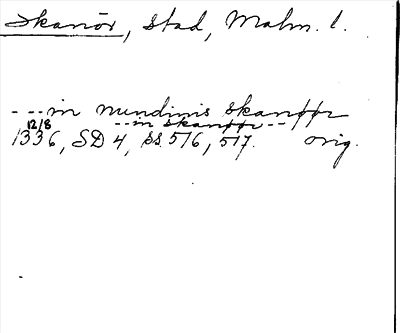 Skanör, Stad, Malm. l.
- -- in nundinis Skanffr
12/8 -- in skanffr --
1336, SD 4, ss. 516, 517. orig.